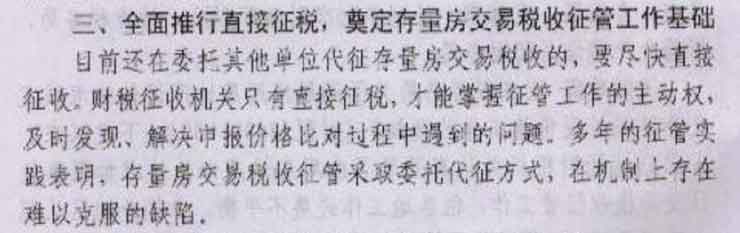 三、全面推行直接征税，奠定存量房交易税收征管工作基础
目前还在委托其他单位代征存量房交易税收的，要尽快直接
征收。财税征收机关只有直接征税，才能掌握征管工作的主动权，
及时发现、解决申报价格比对过程中遇到的问题。多年的征管实
践表明，存量房交易税收征管采取委托代征方式，在机制上存在
难以克服的缺陷。